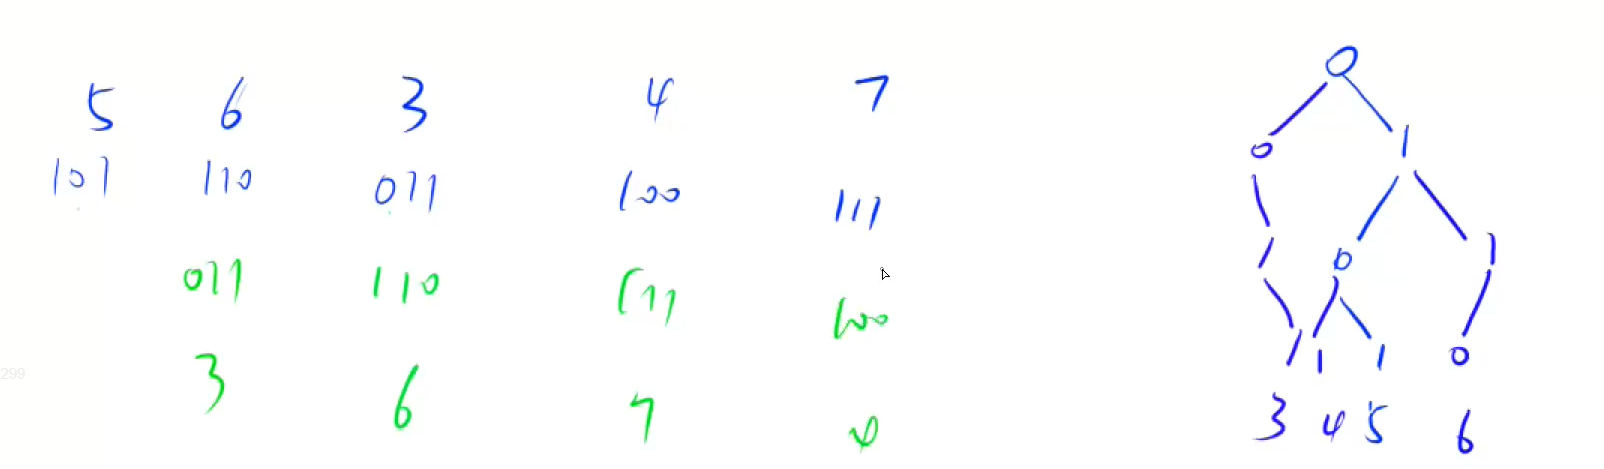 5 6 3 4 7
101 110 011 100 111
011 110 111 100
3 6 7 4
0
0 1
1 0 1
1 1 1 0
3 4 5 6
299